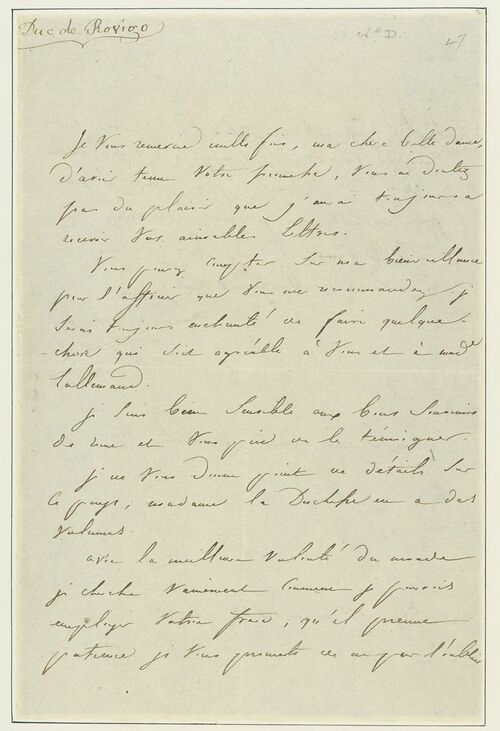 Duc de Rovigo
47
Je Vous remercie mille fois, ma chere belle dame,
d'avoir tenu Votre promesse, Vous ne doutez
pas du plaisir que j'aurai toujours a
recevoir Vos aimables Lettres.
Vous pouvez Compter Sur ma bienveillance
pour l'affaire que Vous me recommandez, je
Serai toujours enchanté de faire quelque-
chose qui Soit agréable à Vous et à made
Lallemand.
je Suis bien Sensible aux bons Souvenirs
de et Vous prie de le témoigner.
je ne Vous donne point de détails Sur
Ce pays, madame la Duchesse en a des
Volumes.
avec la meilleure Volonté du monde
je cherche Vainement Comment je pourrois
employer Votre frere, qu'il prenne
patience je Vous promets de ne pas l'oublier